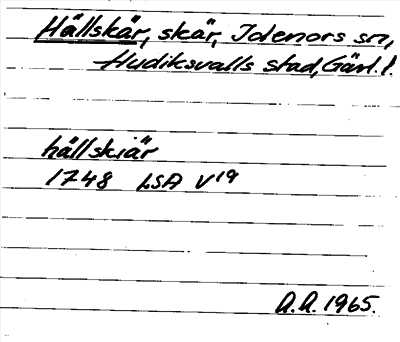 Hällskär, skär, Idenors sn,
Hudiksvalls stad, Gävl. l.
hällskiär
1748 LSA V19
A.A. 1965.